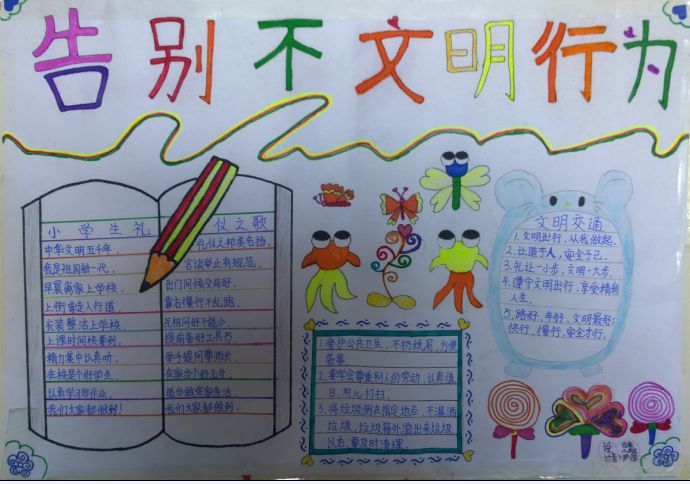 告别不文明行为
小学生礼仪之歌
中华文明五千年，
我是祖国新一代，
早晨离家上学校，
上街要走人行道，
衣装整洁上学校，
上课时间快要到，
精力集中认真听，
在校是个好学生，
认真学习写作业，
我们大家都做到！
礼仪之邦美名扬。
言谈举止有规范。
出门问候父母好。
靠右慢行不乱跑。
互相问好不能小。
提前备好工具书。
举手提问尊师长。
在家当个好儿女。
适当做些家务活。
我们大家都做到。
1.爱护公共卫生，不扔纸屑，方便
袋等。
2.要学会尊重别人的劳动，认真值
日，用心打扫。
3.将垃圾倒在指定地点，不漏洒
垃圾，垃圾箱外溢出来垃圾
以后，要及时清理。
文明交通
1.文明出行，从我做起。
2.让道于人，安全于己。
3.礼让一小步，文明一大步。
4.遵守文明出行，享受精彩
人生。
5.路好、车好、文明最好；
快行、慢行、安全才行。